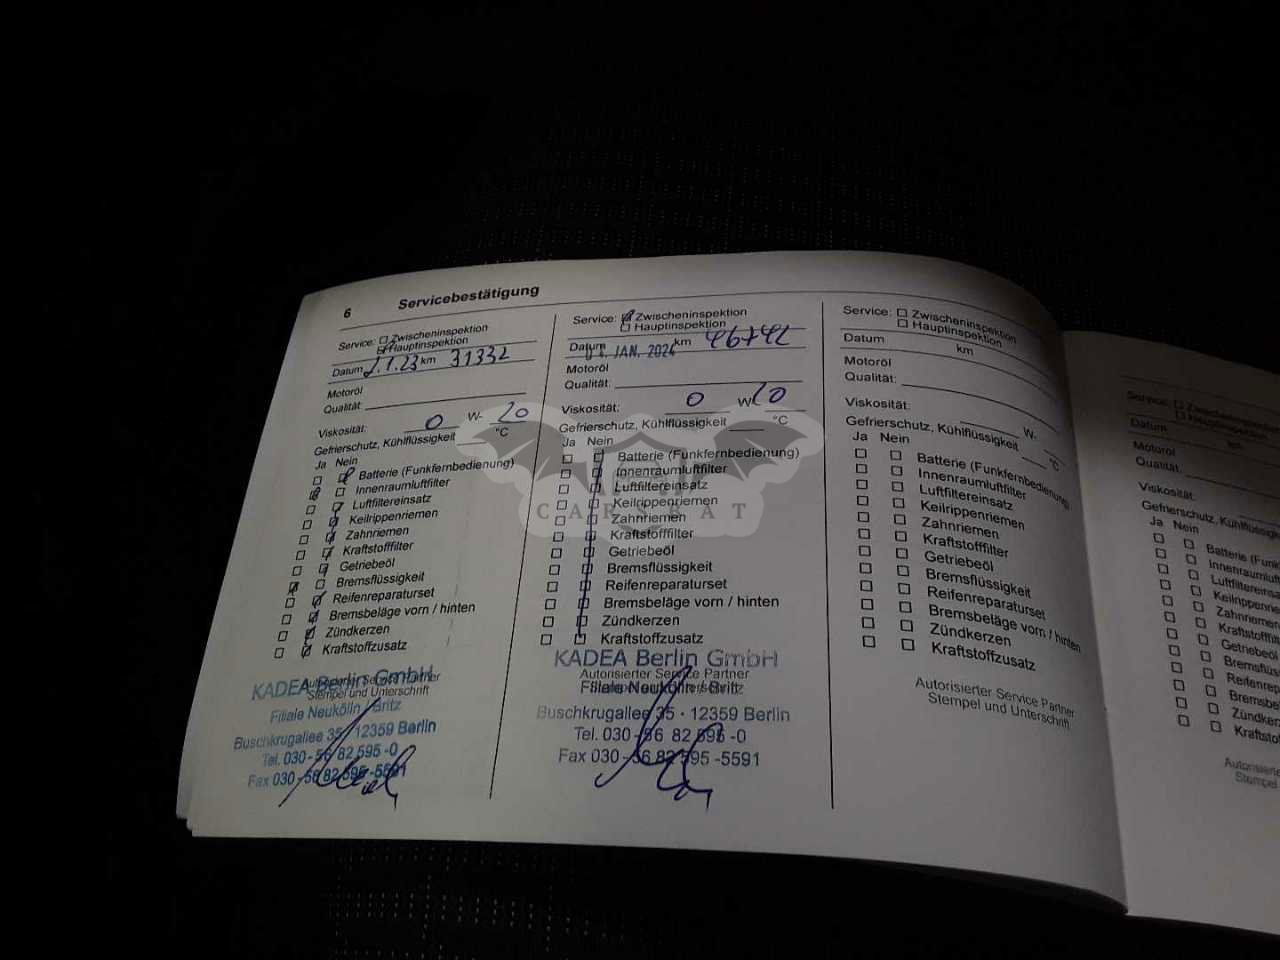 6 Servicebestätigung
Service: Zwischeninspektion
Hauptinspektion
Datum 2.1.23 km 31332
Motoröl
Qualität:
Viskosität: 0 W- 20
Gefrierschutz, Kühlflüssigkeit °C
Ja Nein
Batterie (Funkfernbedienung)
Innenraumluftfilter
Luftfiltereinsatz
Keilrippenriemen
Zahnriemen
Kraftstofffilter
Getriebeöl
Bremsflüssigkeit
Reifenreparaturset
Bremsbeläge vorn / hinten
Zündkerzen
Kraftstoffzusatz
Autorisierter Service Partner
Stempel und Unterschrift
KADEA Berlin GmbH
Filiale Neukölln / Britz
Buschkrugallee 35 · 12359 Berlin
Tel. 030 - 56 82 595 -0
Fax 030 - 56 82 595 -5591
Service: Zwischeninspektion
Hauptinspektion
Datum JAN. 2024 km 46742
Motoröl
Qualität:
Viskosität: 0 W- 20
Gefrierschutz, Kühlflüssigkeit °C
Ja Nein
Batterie (Funkfernbedienung)
Innenraumluftfilter
Luftfiltereinsatz
Keilrippenriemen
Zahnriemen
Kraftstofffilter
Getriebeöl
Bremsflüssigkeit
Reifenreparaturset
Bremsbeläge vorn / hinten
Zündkerzen
Kraftstoffzusatz
KADEA Berlin GmbH
Autorisierter Service Partner
Filiale Neukölln / Britz
Buschkrugallee 35 · 12359 Berlin
Tel. 030 - 56 82 595 -0
Fax 030 - 56 82 595 -5591
Service: Zwischeninspektion
Hauptinspektion
Datum km
Motoröl
Qualität:
Viskosität: W-
Gefrierschutz, Kühlflüssigkeit °C
Ja Nein
Batterie (Funkfernbedienung)
Innenraumluftfilter
Luftfiltereinsatz
Keilrippenriemen
Zahnriemen
Kraftstofffilter
Getriebeöl
Bremsflüssigkeit
Reifenreparaturset
Bremsbeläge vorn / hinten
Zündkerzen
Kraftstoffzusatz
Autorisierter Service Partner
Stempel und Unterschrift
Service: Zwischeninspektion
Hauptinspektion
Datum km
Motoröl
Qualität:
Viskosität:
Gefrierschutz, Kühlflüssigk
Ja Nein
Batterie (Funk
Innenraumluft
Luftfiltereinsa
Keilrippenrie
Zahnriemen
Kraftstofffilt
Getriebeöl
Bremsflüssi
Reifenrepa
Bremsbe
Zündker
Kraftsto
Autorisierte
Stempel
CARSBAT